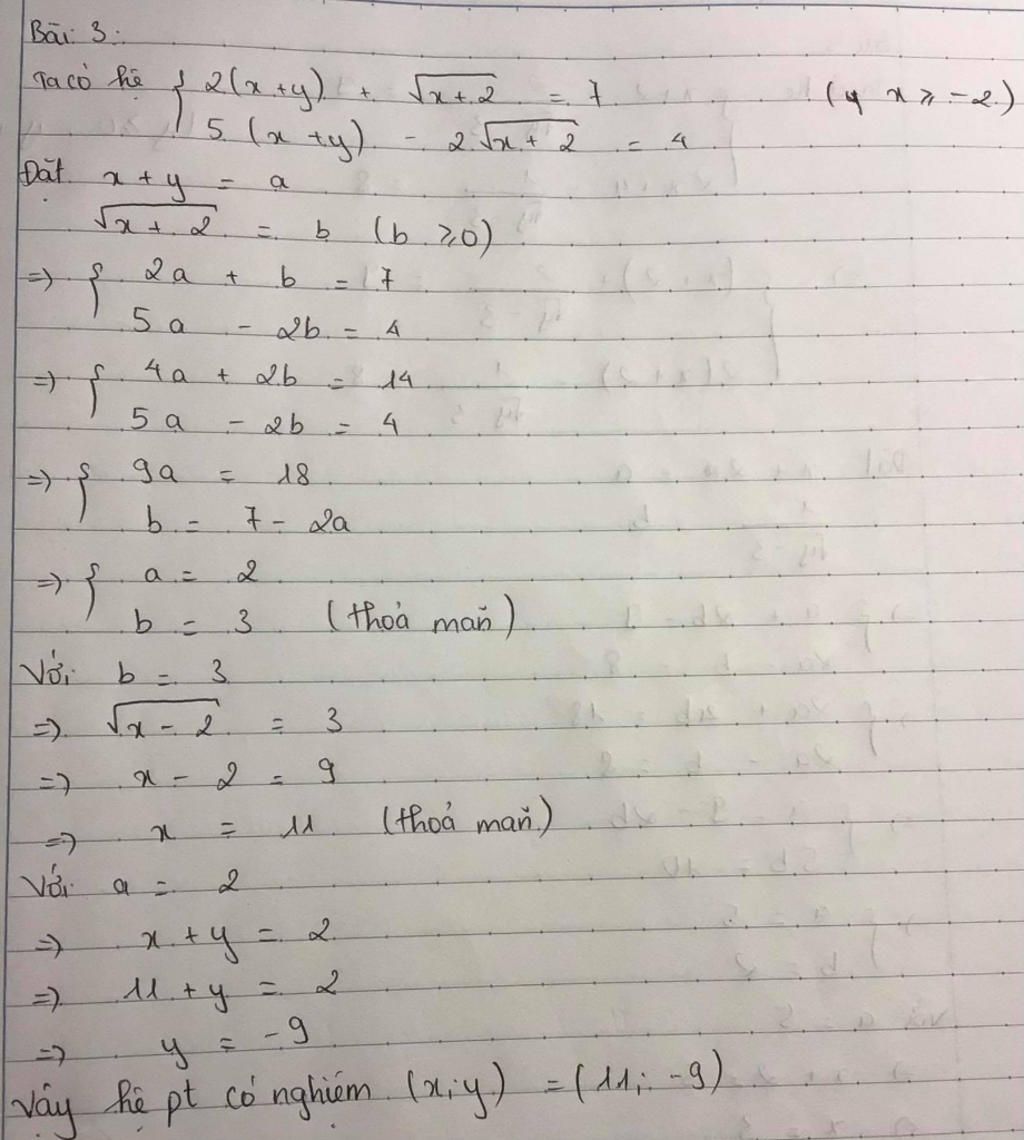 Bài 3:
Ta có hệ { 2(x+y) + √(x+2) = 7 (x ≥ -2)
5 (x+y) - 2√(x+2) = 4
Đặt x+y = a
√(x+2) = b (b ≥0)
=> { 2a + b = 7
5a - 2b = 4
=> { 4a + 2b = 14
5a - 2b = 4
=> { 9a = 18
b = 7 - 2a
=> { a = 2
b = 3 (thoả mãn)
Với b = 3
=> √(x-2) = 3
=> x - 2 = 9
=> x = 11 (thoả mãn)
Với a = 2
=> x + y = 2
=> 11 + y = 2
=> y = -9
Vậy hệ pt có nghiệm (x;y) = (11; -9)